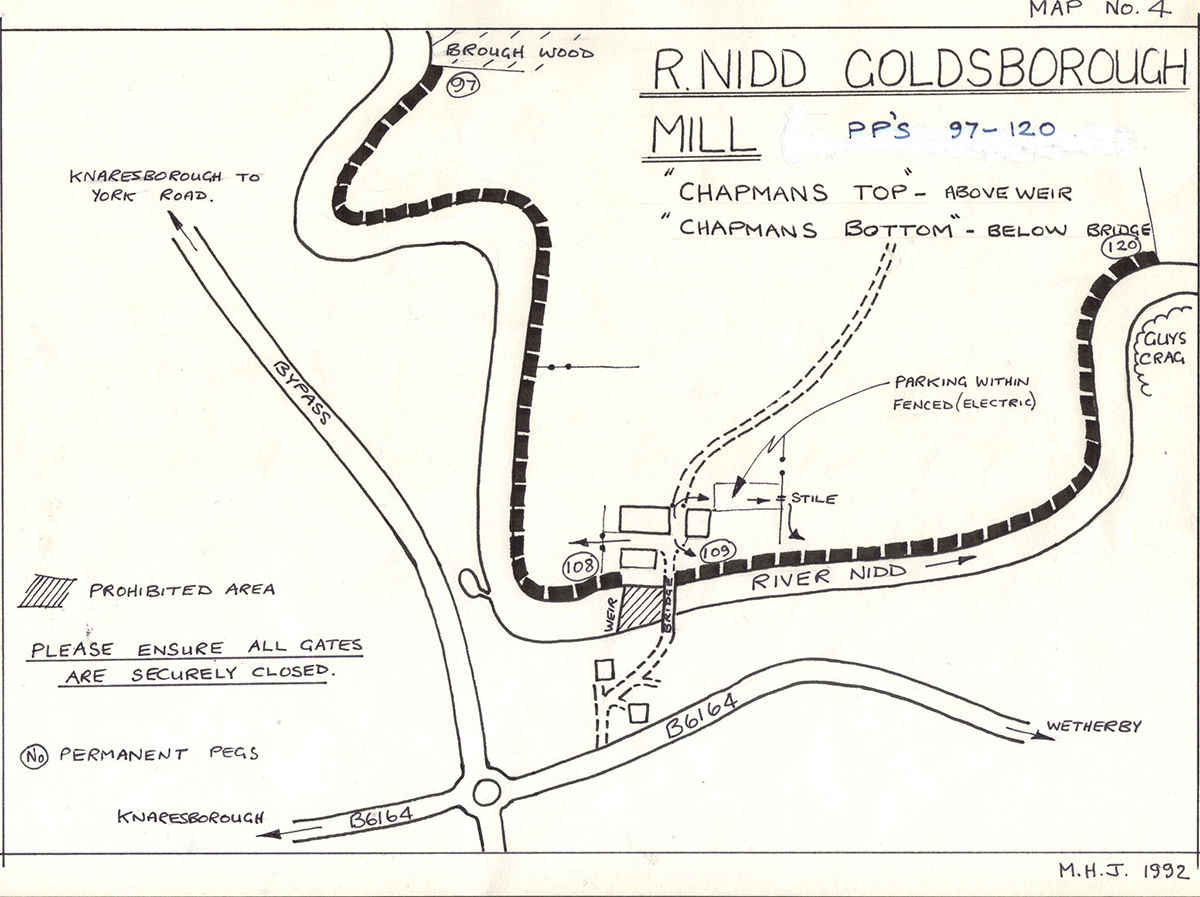 MAP No. 4
BROUGH WOOD
97
R. NIDD GOLDSBOROUGH
MILL
PP'S 97-120
"CHAPMANS TOP" - ABOVE WEIR
"CHAPMANS BOTTOM" - BELOW BRIDGE
120
KNARESBOROUGH TO
YORK ROAD.
BYPASS
GUYS
CRAG
PARKING WITHIN
FENCED (ELECTRIC)
STILE
108
109
RIVER NIDD
WEIR
BRIDGE
PROHIBITED AREA
PLEASE ENSURE ALL GATES
ARE SECURELY CLOSED.
No PERMANENT PEGS
B6164
WETHERBY
KNARESBOROUGH
B6164
M.H.J. 1992